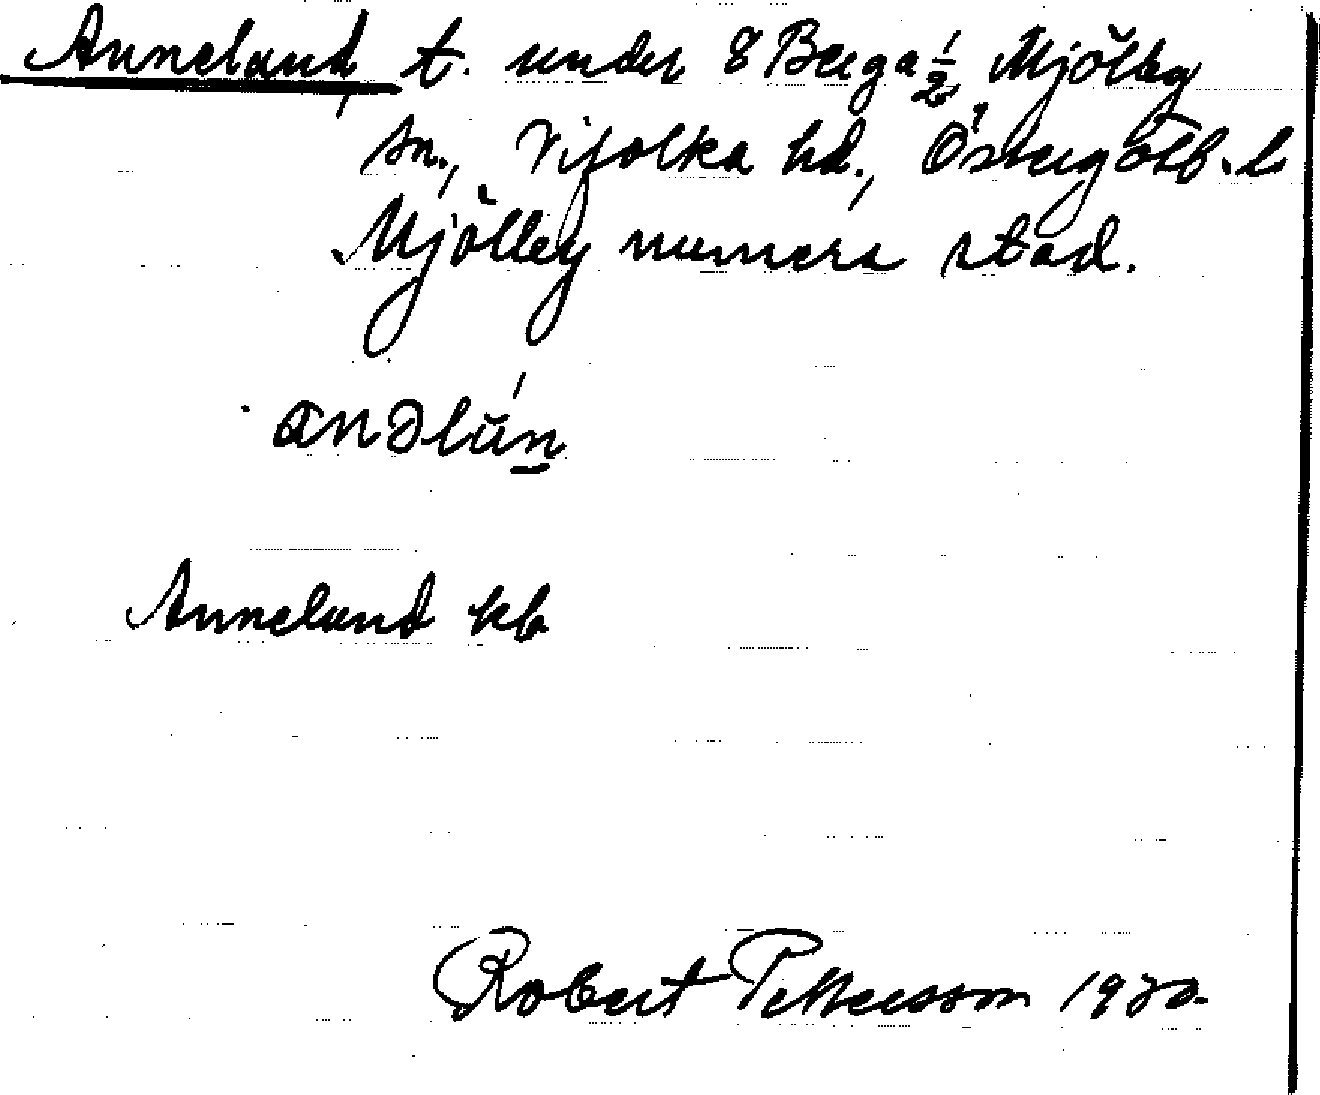 Anneland, t. under 8 Berga ½ Mjölby
sn., Vifolka hd., Östergötl. l
Mjölby numera stad.
Anneland kb
Robert Pettersson 1930